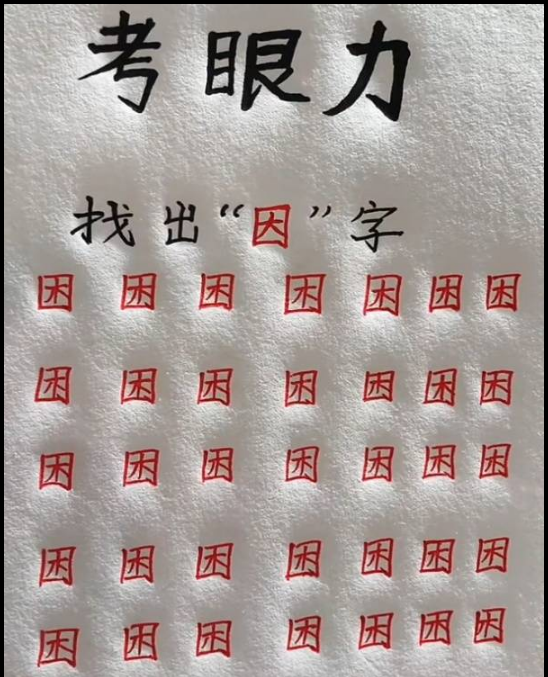 考眼力
找出“因”字
困困困困困困困
困困困困困困困
困困困困困困困
困困困困困困困
困困困困困困困